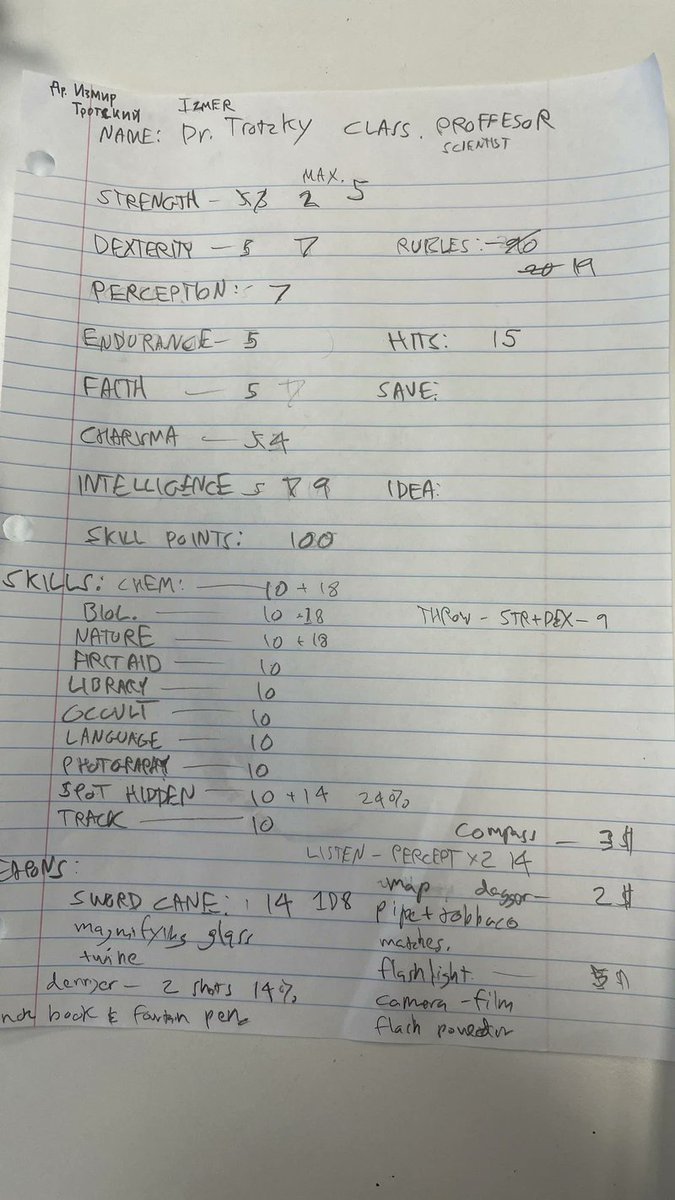 Др. Измир
Тротский
IZMER
NAME: Dr. Trotzky CLASS. PROFFESOR
SCIENTIST
MAX.
STRENGTH - 5 3 2 5
DEXTERITY - 5 7 RUBLES: - 20
20 19
PERCEPTION: - 7
ENDURANCE - 5 HITS: 15
FAITH - 5 7 SAVE:
CHARISMA - 5 4
INTELLIGENCE 5 7 9 IDEA:
SKILL POINTS: 100
SKILLS: CHEM: - 10 + 18
BIOL. 10 + 18 THROW - STR+DEX - 9
NATURE - 10 + 18
FIRST AID - 10
LIBRARY - 10
OCCULT - 10
LANGUAGE - 10
PHOTOGRAPHY - 10
SPOT HIDDEN - 10 + 14 24%
TRACK - 10
compass - 3 $
LISTEN - PERCEPT X2 14
EAPONS:
map daggor - 2 $
SWORD CANE: 14 1D8
pipe + tobbaco
magnifying glass
matches.
twine
flashlight -
derrjer - 2 shots 14%
camera - film
book & pen
flash powedor